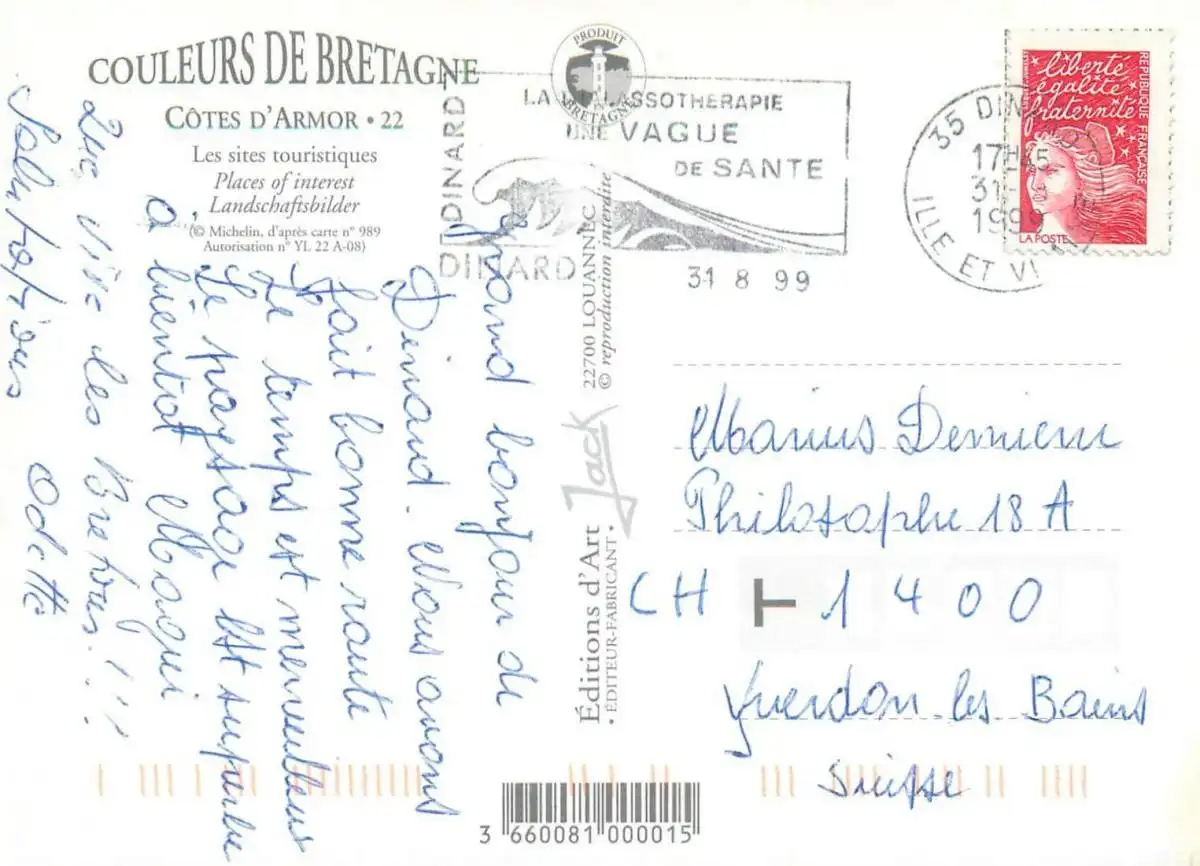 COULEURS DE BRETAGNE
CÔTES D'ARMOR • 22
Les sites touristiques
Places of interest
Landschaftsbilder
(© Michelin, d'après carte n° 989
Autorisation n° YL 22 A-08)
PRODUIT
BRETAGNE
DINARD
DINARD
LA THALASSOTHERAPIE
UNE VAGUE
DE SANTE
31 8 99
35 DINARD
17H45
31
1999
ILLE ET VI
liberté
égalité
fraternité
RÉPUBLIQUE FRANÇAISE
LA POSTE
grand bonjour de
Dinard. Nous avons
fait bonne route
Le temps est merveilleux
Le paysage est superbe
à bientôt
Que vive les Bretons!!!
Salutations Odette
22700 LOUANNEC
© reproduction interdite
Jack
Éditions d'Art
• ÉDITEUR-FABRICANT •
Marius
Philosophe 18 A
CH T 1400
Yverdon les Bains
Suisse
3 660081 000015